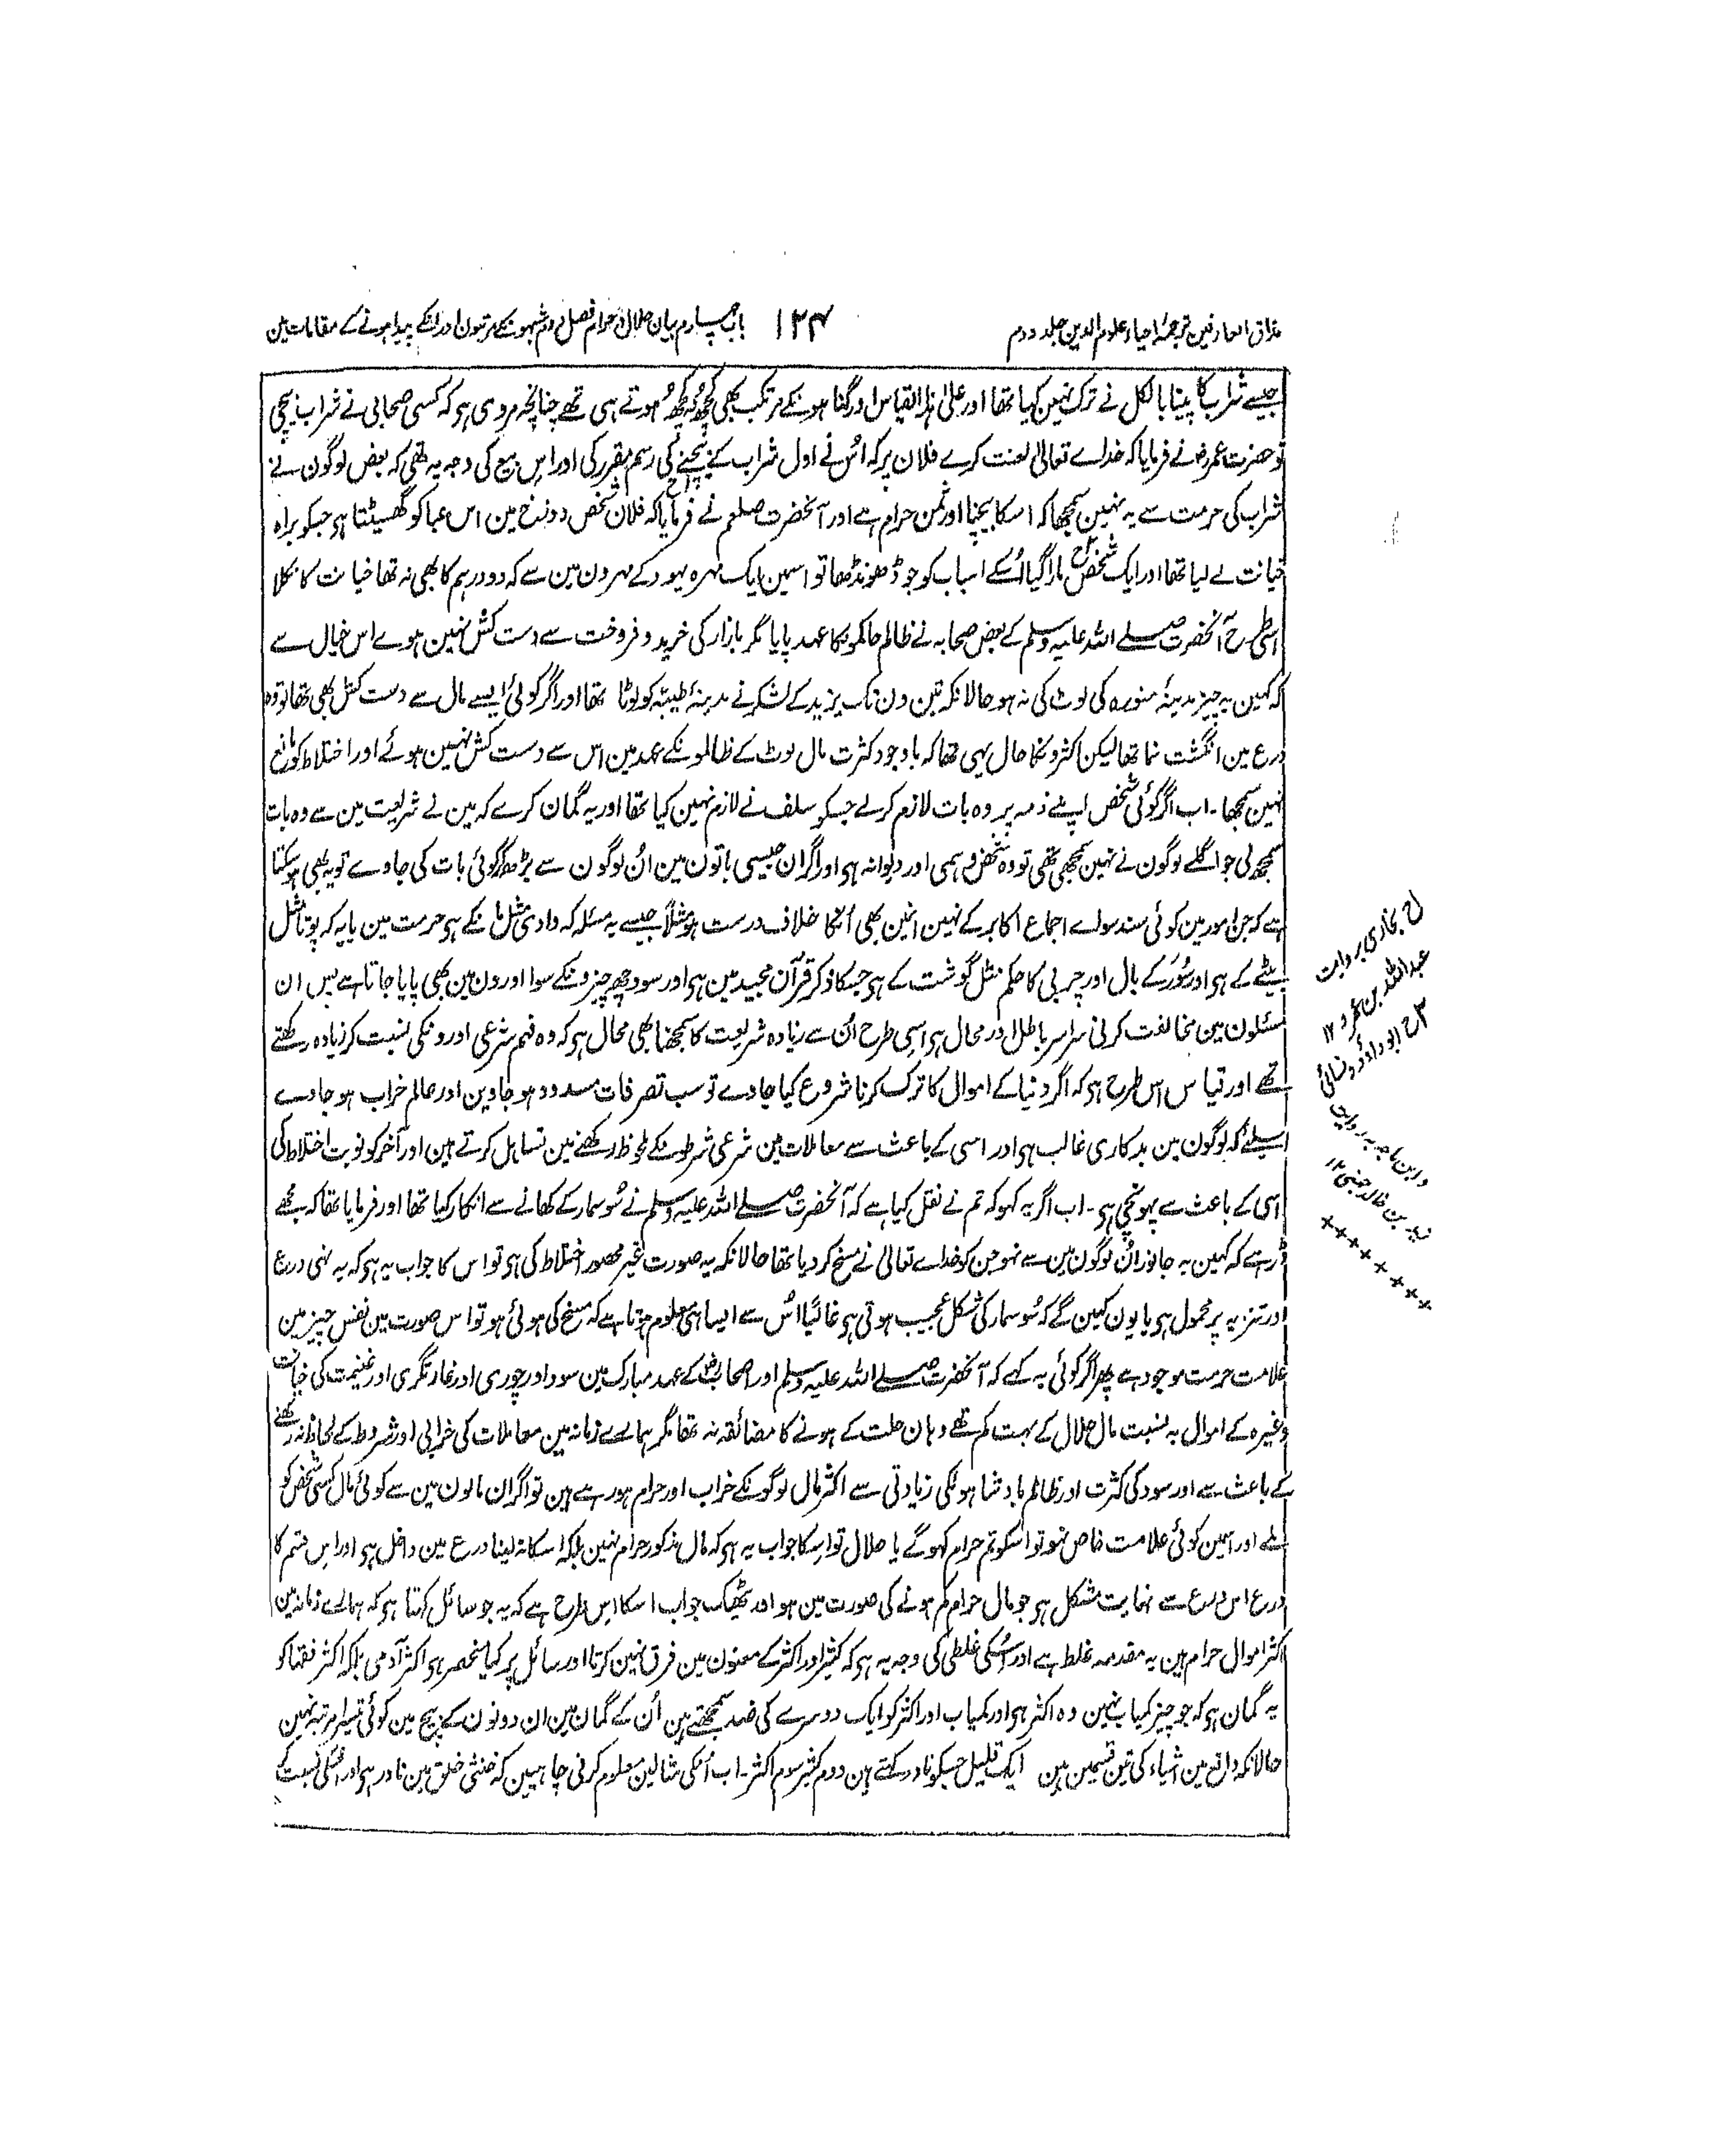 مذاق العارفین ترجمۂ احیاء علوم الدین جلد دوم
۱۲۴
باب چہارم بیان حلال و حرام فصل دوم شبہونکے مرتبون اور انکے پیدا ہونے کے مقامات مین
جیسے شراب کا پینا بالکل نے ترک نہین کیا تھا اور علیٰ ہذا القیاس اور گناہونکے مرتکب بھی کچھ نہ کچھ ہوتے ہی تھے چنانچہ مروی ہو کہ کسی صحابی نے شراب بیچی
تو حضرت عمر رضہ نے فرمایا کہ خداے تعالیٰ لعنت کرے فلان پر کہ اُس نے اول شراب کے بیچنے کی رسم مقرر کی اور اس بیع کی وجہ یہ تھی کہ بعض لوگون نے
شراب کی حرمت سے یہ نہین سمجھا کہ اسکا بیچنا اور ثمن حرام ہے اور آنحضرت صلعم نے فرمایا کہ فلان شخص دوزخ مین اس عبا کو گھسیٹتا ہو جسکو براہ
خیانت لے لیا تھا اور ایک شخص مارا گیا اُسکے اسباب کو جو ڈھونڈھا تو اسمین ایک مہرہ یہود کے مہرون مین سے کہ دو درہم کا بھی نہ تھا خیانت کا نکلا
اسی طرح آنحضرت صلے اللہ علیہ وسلم کے بعض صحابہ نے ظالم حاکمونکا عہد پایا مگر بازار کی خرید و فروخت سے دست کش نہین ہوے اس خیال سے
کہ کہین یہ چیز مدینۂ منورہ کی لوٹ کی نہ ہو حالانکہ تین دن تک یزید کے لشکر نے مدینۂ طیبہ کو لوٹا تھا اور اگر کوئی ایسے مال سے دست کش بھی تھا تو وہ
ورع مین انگشت نما تھا لیکن اکثرونکا حال یہی تھا کہ باوجود کثرت مال لوٹ کے ظالمونکے عہد مین اس سے دست کش نہین ہوئے اور اختلاط کو مانع
نہین سمجھا۔ اب اگر کوئی شخص اپنے ذمہ پر وہ بات لازم کرلے جسکو سلف نے لازم نہین کیا تھا اور یہ گمان کرے کہ مین نے شریعت مین سے وہ بات
سمجھ لی جو اگلے لوگون نے نہین سمجھی تھی تو وہ شخص وہمی اور دیوانہ ہو اور اگر ان جیسی باتون مین اُن لوگون سے بڑھکر کوئی بات کی جاوے تو یہ بھی ہوسکتا
ہے کہ جن امور مین کوئی سند سواے اجماع اکابر کے نہین انمین بھی اُنکا خلاف درست ہو مثلاً جیسے یہ مسئلہ کہ دادی مثل مانکے ہو حرمت مین یا یہ کہ پوتا مثل
بیٹے کے ہو اور سُور کے بال اور چربی کا حکم مثل گوشت کے ہو جسکا ذکر قرآن مجید مین ہو اور سود چھ چیزونکے سوا اورون مین بھی پایا جاتا ہے پس ان
مسئلون مین مخالفت کرنی سراسر باطل اور محال ہو اسی طرح اُن سے زیادہ شریعت کا سمجھنا بھی محال ہو کہ وہ فہم شرعی اورونکی نسبت کر زیادہ رکھتے
تھے اور قیاس اس طرح ہو کہ اگر دنیا کے اموال کا ترک کرنا شروع کیا جاوے تو سب تصرفات مسدود ہوجاوین اور عالم خراب ہوجاوے
اسلیئے کہ لوگون مین بدکاری غالب ہو اور اسی کے باعث سے معاملات مین شرعی شرطونکے ملحوظ رکھنے مین تساہل کرتے ہین اور آخر کو نوبت اختلاط کی
اسی کے باعث سے پہونچی ہو۔ اب اگر یہ کہو کہ تم نے نقل کیا ہے کہ آنحضرت صلے اللہ علیہ وسلم نے سُوسمار کے کھانے سے انکار کیا تھا اور فرمایا تھا کہ مجھے
ڈر ہے کہ کہین یہ جانور اُن لوگون مین سے نہو جن کو خداے تعالیٰ نے مسخ کردیا تھا حالانکہ یہ صورت غیر محصور اختلاط کی ہو تو اس کا جواب یہ ہو کہ یہ نہی ورع
اور تنزیہ پر محمول ہو یا یون کہین گے کہ سُوسمار کی شکل عجیب ہوتی ہو غالباً اُس سے ایسا ہی معلوم ہوتا ہے کہ مسخ کی ہوئی ہو تو اس صورت مین نفس چیز مین
علامت حرمت موجود ہے پھر اگر کوئی یہ کہے کہ آنحضرت صلے اللہ علیہ وسلم اور صحابہ رضہ کے عہد مبارک مین سود اور چوری اور غارتگری اور غنیمت کی خیانت
وغیرہ کے اموال بہ نسبت مال حلال کے بہت کم تھے وہان حلت کے ہونے کا مضائقہ نہ تھا مگر ہمارے زمانہ مین معاملات کی خرابی اور شروط کے لحاظ نہ رکھنے
کے باعث سے اور سود کی کثرت اور ظالم بادشاہونکی زیادتی سے اکثر مال لوگونکے خراب اور حرام ہورہے ہین تو اگر ان مالون مین سے کوئی مال کسی شخص کو
ملے اور اسمین کوئی علامت خاص نہو تو اسکو تم حرام کہوگے یا حلال تو اسکا جواب یہ ہو کہ مال مذکور حرام نہین بلکہ اسکا نہ لینا ورع مین داخل ہو اور اس قسم کا
ورع اس ورع سے نہایت مشکل ہو جو مال حرام کم ہونے کی صورت مین ہو اور ٹھیک جواب اسکا اس طرح ہے کہ یہ جو سائل کہتا ہو کہ ہمارے زمانہ مین
اکثر اموال حرام ہین یہ مقدمہ غلط ہے اور اُسکی غلطی کی وجہ یہ ہو کہ کثیر اور اکثر کے معنون مین فرق نہین کرتا اور سائل پر کیا منحصر ہو اکثر آدمی بلکہ اکثر فقہا کو
یہ گمان ہو کہ جو چیز کمیاب نہین وہ اکثر ہو اور کمیاب اور اکثر کو ایک دوسرے کی ضد سمجھتے ہین اُن کے گمان مین ان دونون کے بیچ مین کوئی تیسرا مرتبہ نہین
حالانکہ واقع مین اشیاء کی تین قسمین ہین ایک قلیل جسکو نادر کہتے ہین دوم کثیر سوم اکثر۔ اب اُنکی مثالین معلوم کرنی چاہیین کہ خنثی خلق مین نادر ہو اور اُسکی نسبت کے
ح بخاری بروایت
عبداللہ بن عمرو ۱۲
ح ابوداؤد و نسائی
و ابن ماجہ بروایت
زید بن خالد جہنی ۱۲
××××××××